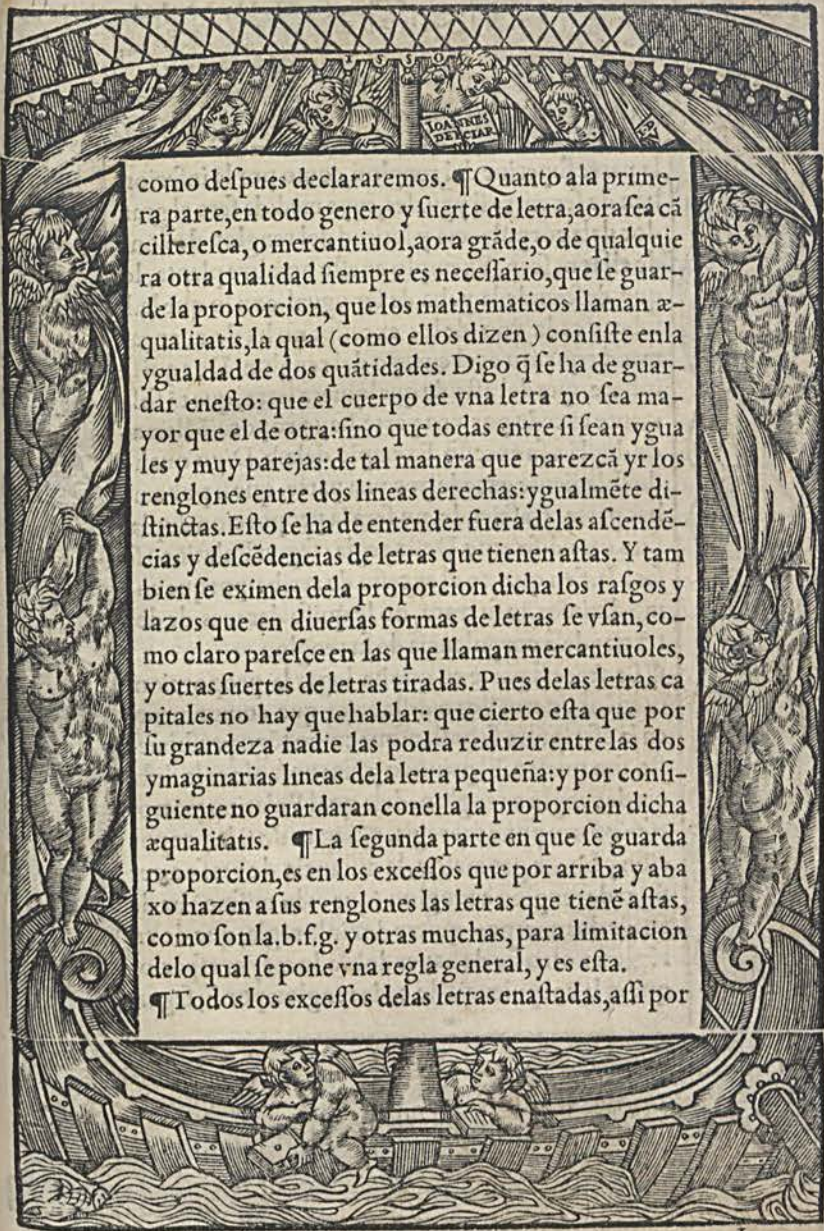 1550
IOANNES
DEYCIAR
como deſpues declararemos. ¶Quanto ala prime-
ra parte,en todo genero y ſuerte de letra,aora ſea cã
cillereſca, o mercantiuol,aora grãde,o de qualquie
ra otra qualidad ſiempre es neceſſario,que ſe guar-
de la proporcion, que los mathematicos llaman æ-
qualitatis,la qual (como ellos dizen ) conſiſte enla
ygualdad de dos quãtidades. Digo q̃ ſe ha de guar-
dar eneſto: que el cuerpo de vna letra no ſea ma-
yor que el de otra:ſino que todas entre ſi ſean ygua
les y muy parejas:de tal manera que parezcã yr los
renglones entre dos lineas derechas:ygualmẽte di-
ſtinctas.Eſto ſe ha de entender fuera delas aſcendẽ-
cias y deſcẽdencias de letras que tienen aſtas. Y tam
bien ſe eximen dela proporcion dicha los raſgos y
lazos que en diuerſas formas de letras ſe vſan, co-
mo claro pareſce en las que llaman mercantiuoles,
y otras ſuertes de letras tiradas. Pues delas letras ca
pitales no hay que hablar: que cierto eſta que por
ſu grandeza nadie las podra reduzir entre las dos
ymaginarias lineas dela letra pequeña:y por conſi-
guiente no guardaran conella la proporcion dicha
æqualitatis. ¶La ſegunda parte en que ſe guarda
proporcion,es en los exceſſos que por arriba y aba
xo hazen a ſus renglones las letras que tienẽ aſtas,
como ſon la.b.f.g. y otras muchas, para limitacion
delo qual ſe pone vna regla general, y es eſta.
¶Todos los exceſſos delas letras enaſtadas,aſſi por